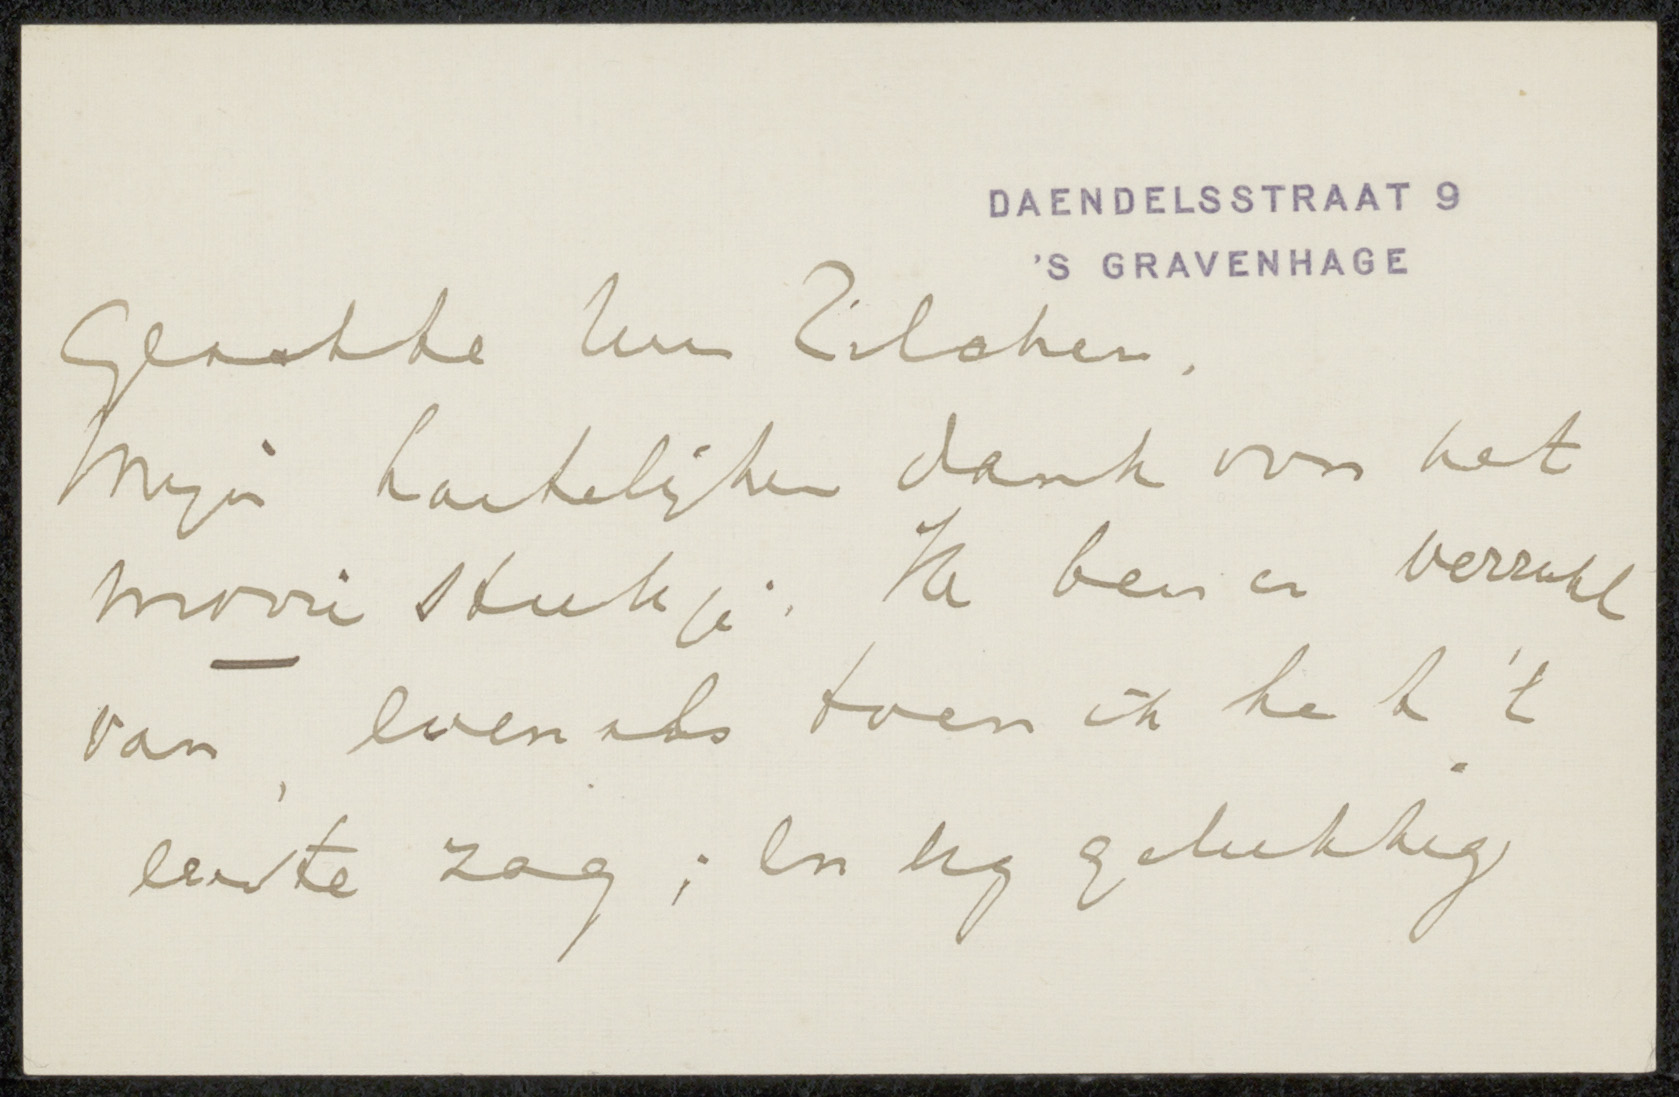 DAENDELSSTRAAT 9
'S GRAVENHAGE
Geachte Heer Zilcken,
Mijn hartelijken dank voor het
mooie stukje. Ik ben er verrukt
van, evenals toen ik het 't
eerste zag; en erg gelukkig